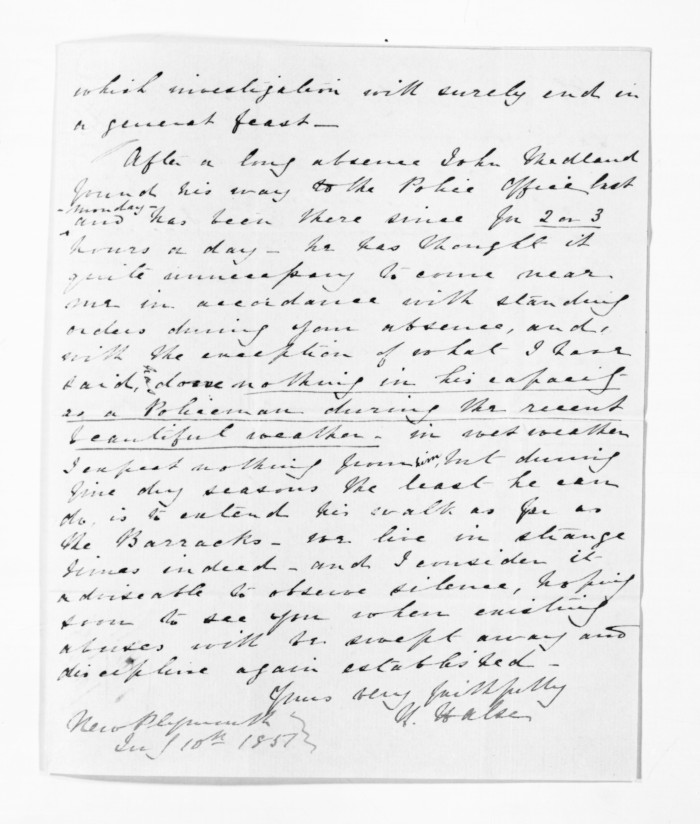 which investigation will surely end in
a general feast—
After a long absence John Medland
found his way to the Police Office last
-Monday-
and has been there since for 2 or 3
hours a day - he has thought it
quite unnecessary to come near
me in accordance with standing
orders during your absence, and,
with the exception of what I have
said, done nothing in his capacity
as a Policeman during the recent
beautiful weather - in wet weather
I expect nothing from him, but during
fine dry seasons the least he can
do, is to extend his walk as far as
the Barracks - we live in strange
times indeed - and I consider it
adviseable to observe silence, hoping
soon to see you when existing
abuses will be swept away and
discipline again established -
Yours very faithfully
H. Halse
New Plymouth
10th 1851